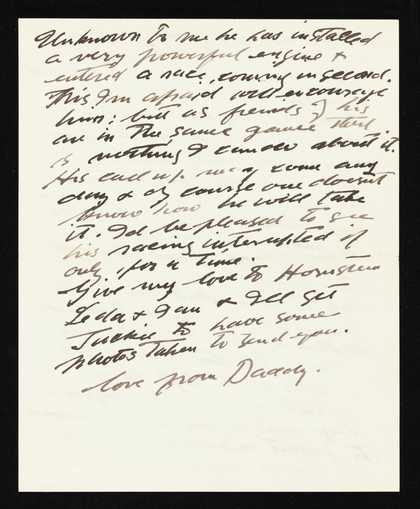 Unknown to me he has installed
a very powerful engine &
entered a race, coming in second.
This, I'm afraid will encourage
him; but as friends of his
are in the same game there
is nothing I can do about it.
His call up may come any
day & of course one doesn't
know how he will take
it. I'd be pleased to see
his racing interrupted if
only for a time.
Give my love to
Leda & Ian & I'll get
Juckie to have some
photos taken to send you.
love from Daddy.